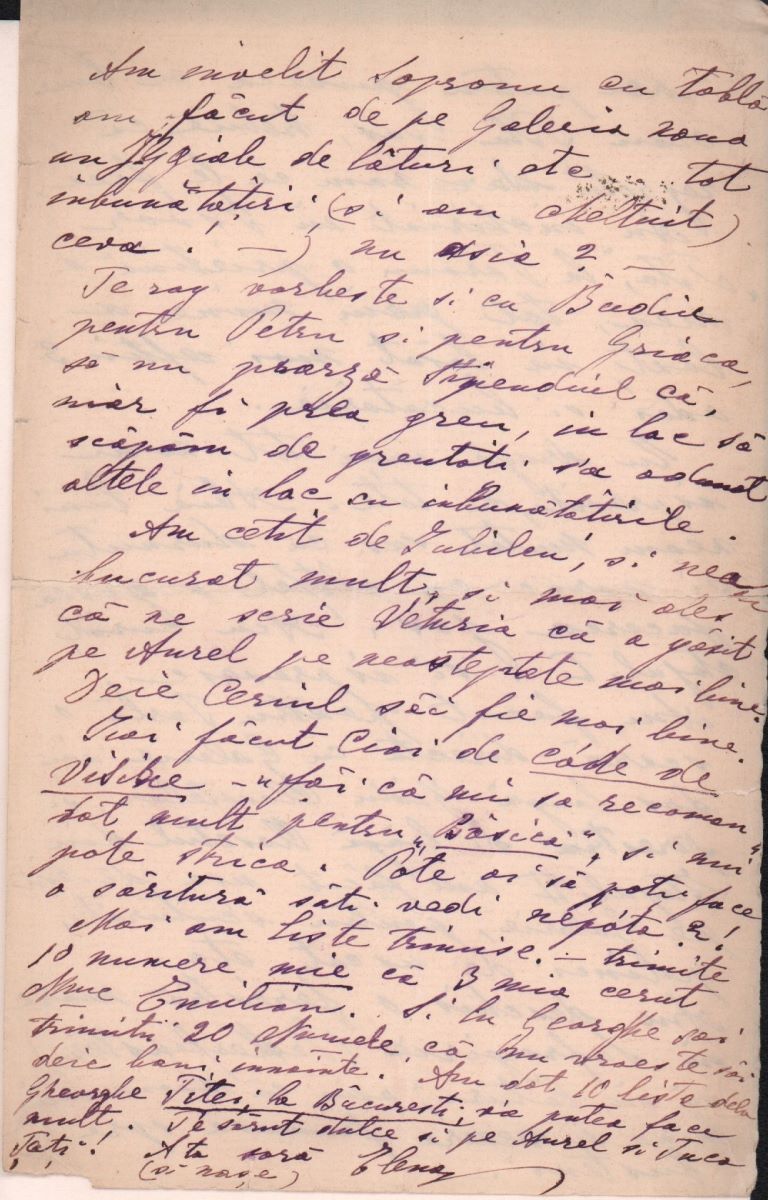 Am invelit Sopronu cu tablă
am făcut de pe Galeria noua
un de lături etc tot
inbunătătiri (si am cheltuit)
ceva! —) nu asia?
Te rog vorbeste si cu Badiu
pentru Petru si pentru Griaca,
să nu piarză stipendiul că,
niar fi prea greu, in loc să
scăpăm de greutati s'a adunat
altele in loc cu inbunătătirile
Am cetit de Jubileu, si nea
bucurat mult, si mai ales
că ne scrie Veturia că a găsit
pe Aurel pe neasteptate mai bine.
Deie Ceriul săi fie mai bine.
Ţiai făcut Ciai de códe de
Visine — "făi că mi sa recoman"
dat mult pentru "Băsică", si nui
póte strica. Póte ai să poti face
o săritură săti vedi nepóta 2!
Mai am liste trimise. — trimite
10 numere mie că 3 mia cerut
Nuc Emilian. Si lu Georghe sai
trimiti 20 Numele că nu vroeste săi
deie bani innainte. Am dat 10 liste dela
Gheorghe Titei la Bucuresti, s'a putea face
mult. Te sărut dulce si pe Aurel si Tuca
Tăti! A ta soră Elena
(si nase)